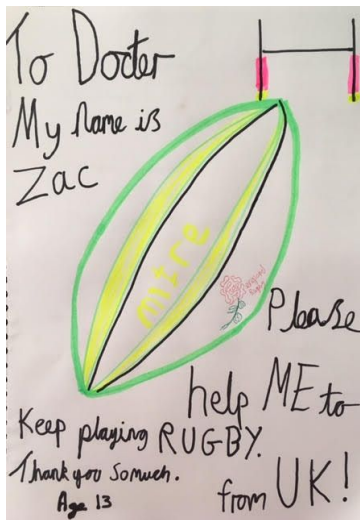 To Docter
My name is
Zac
mitre
England
Rugby
Please
help ME to
Keep playing RUGBY.
Thank you so much.
Age 13
from UK!